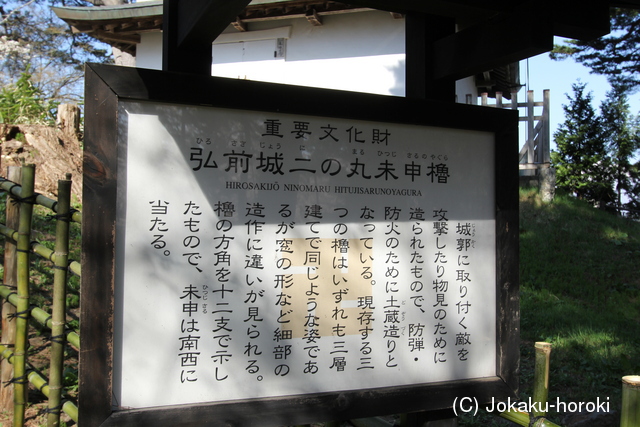 重要文化財
弘前城二の丸未申櫓
ひろ さき じょう に まる ひつじ さるの やぐら
HIROSAKIJŌ NINOMARU HITUJISARUNOYAGURA
城郭に取り付く敵を
攻撃したり物見のために
造られたもので、防弾・
防火のために土蔵造りと
なっている。現存する三
つの櫓はいずれも三層
建てで同じような姿であ
るが窓の形など細部の
造作に違いが見られる。
櫓の方角を十二支で示し
たもので、未申は南西に
当たる。
ひつじ さる
(C) Jokaku-horoki